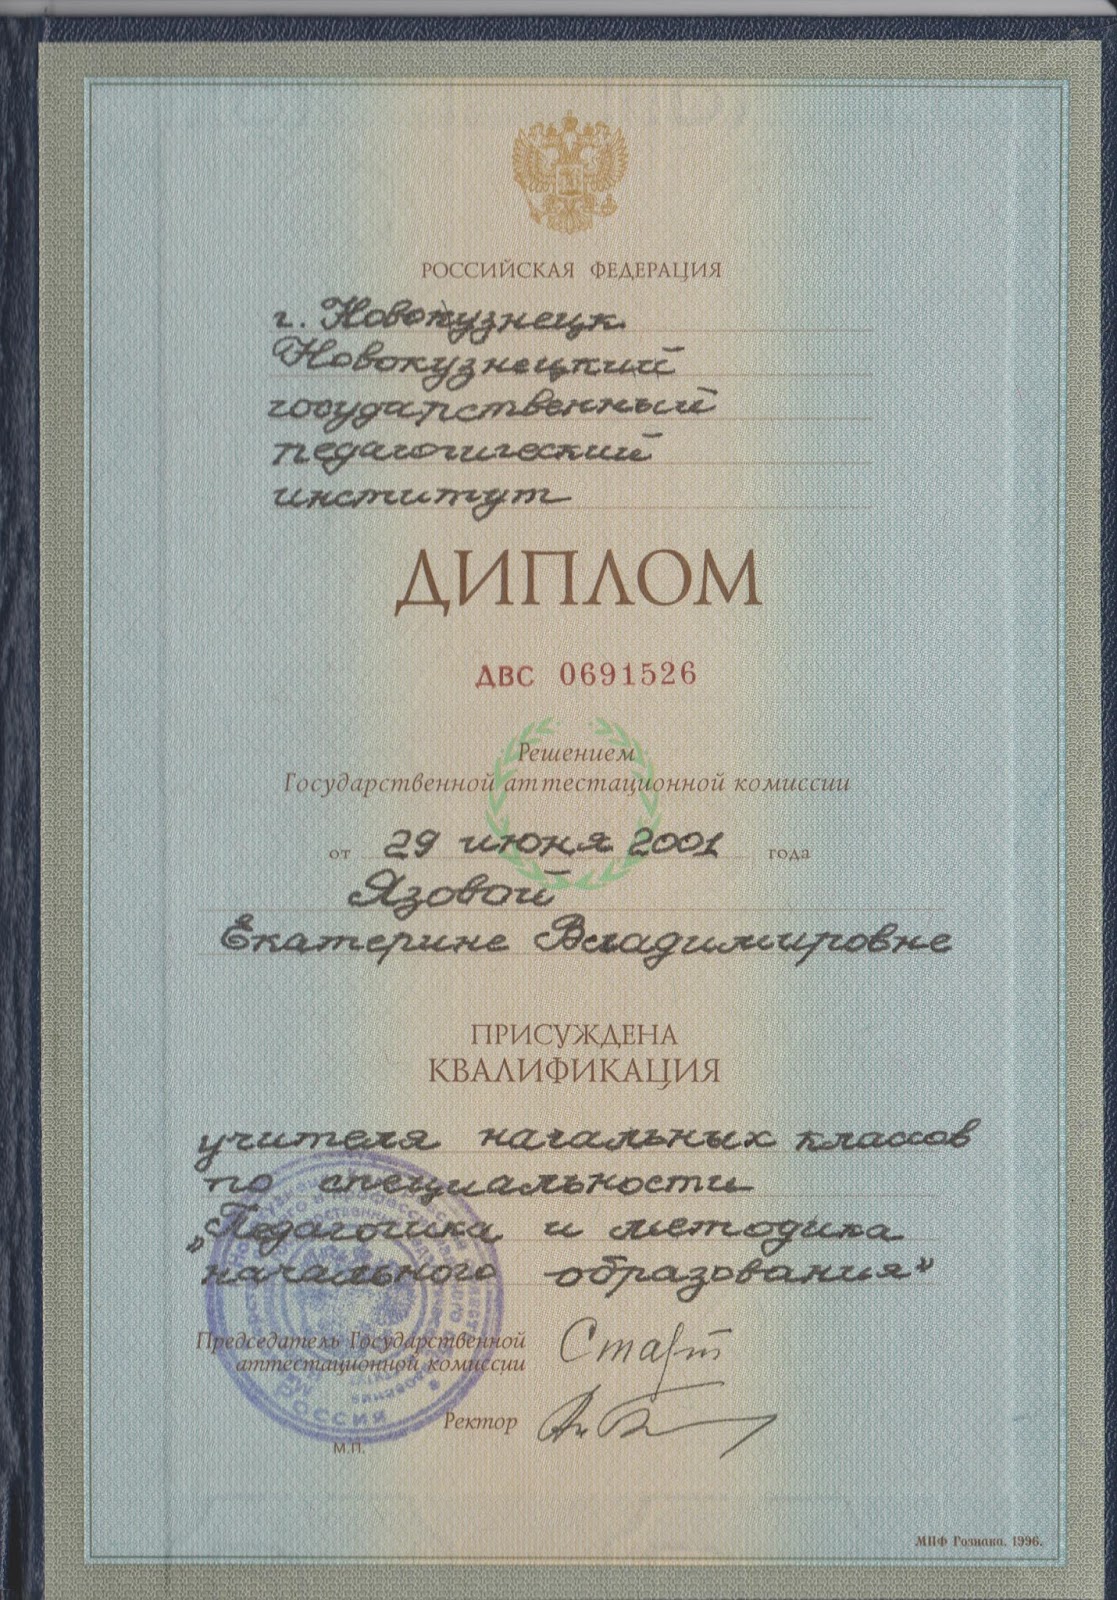 РОССИЙСКАЯ ФЕДЕРАЦИЯ
г. Новокузнецк
Новокузнецкий
государственный
педагогический
институт
ДИПЛОМ
ДВС 0691526
Решением
Государственной аттестационной комиссии
от 29 июня 2001 года
Язовой
Екатерине Владимировне
ПРИСУЖДЕНА
КВАЛИФИКАЦИЯ
учителя начальных классов
по специальности
„Педагогика и методика
начального образования"
Председатель Государственной
аттестационной комиссии
Ректор
РОССИИ
М.П.
МПФ Гознака. 1996.